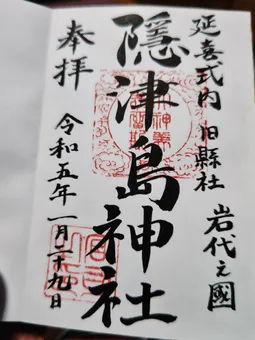 延喜式内 旧縣社
岩代之國
隠津島神社
奉拝
令和五年一月二十九日